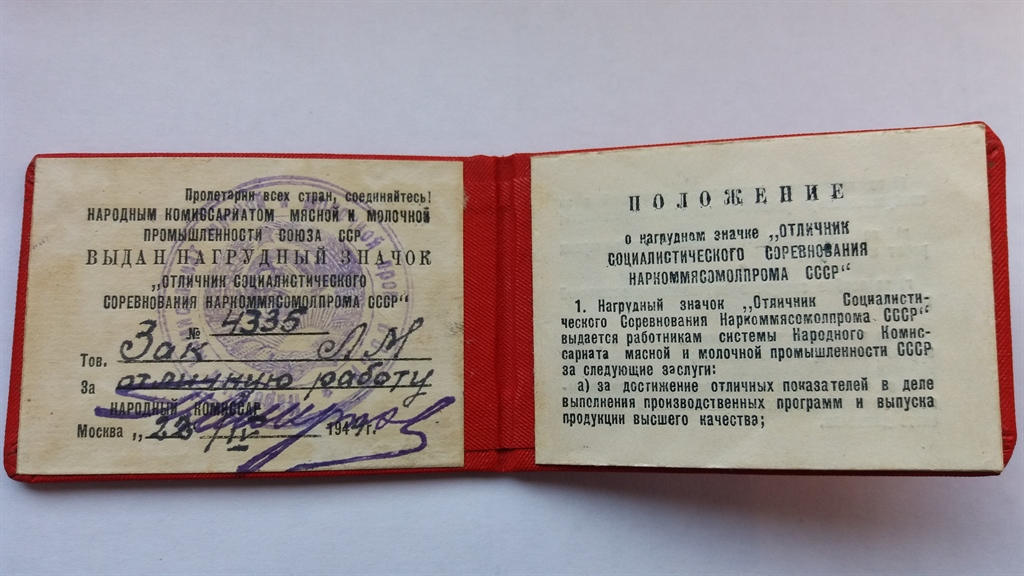 Пролетарии всех стран, соединяйтесь!
НАРОДНЫМ КОМИССАРИАТОМ МЯСНОЙ И МОЛОЧНОЙ
ПРОМЫШЛЕННОСТИ СОЮЗА ССР
ВЫДАН НАГРУДНЫЙ ЗНАЧОК
„ОТЛИЧНИК СОЦИАЛИСТИЧЕСКОГО
СОРЕВНОВАНИЯ НАРКОММЯСОМОЛПРОМА СССР“
№ 4335
Тов. Зак Л М
За отличную работу
НАРОДНЫЙ КОМИССАР
Москва „22 IV 194 г.
ПОЛОЖЕНИЕ
о нагрудном значке „ОТЛИЧНИК
СОЦИАЛИСТИЧЕСКОГО СОРЕВНОВАНИЯ
НАРКОММЯСОМОЛПРОМА СССР“
1. Нагрудный значок „Отличник Социалисти-
ческого Соревнования Наркоммясомолпрома СССР“
выдается работникам системы Народного Комис-
сариата мясной и молочной промышленности СССР
за следующие заслуги:
а) за достижение отличных показателей в деле
выполнения производственных программ и выпуска
продукции высшего качества;